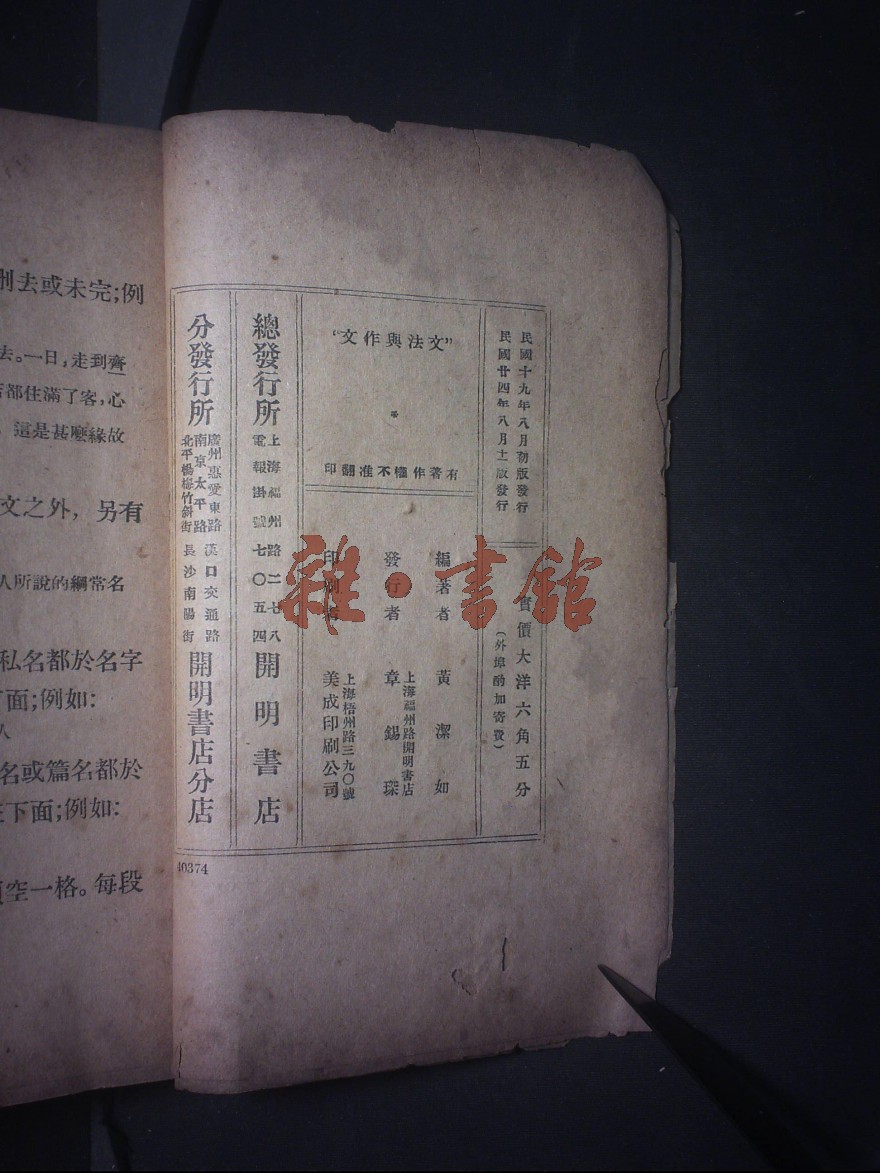 民國十九年八月初版發行
民國廿四年八月十一版發行
實價大洋六角五分
(外埠酌加寄費)
“文法與作文”
有著作權不准翻印
編著者 黃潔如
發行者 章錫琛
上海福州路開明書店
印刷者 美成印刷公司
上海梧州路三九〇號
總發行所 開明書店
上海福州路二七八
電報掛號七〇五四
分發行所 開明書店分店
廣州惠愛東路 漢口交通路
南京太平路
北平楊梅竹斜街 長沙南陽街
40374
雜·書館
刪去或未完;例
去。一日,走到齊
都住滿了客,心
這是甚麼緣故
文之外,另有
人所說的綱常名
私名都於名字
下面;例如:
人
名或篇名都於
下面;例如:
空一格。每段